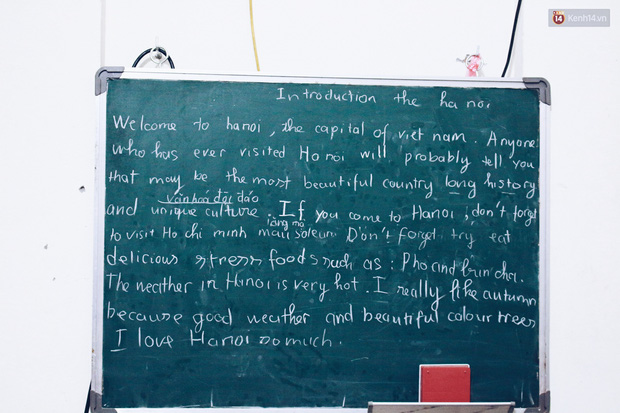 14
Kenh14.vn
Introduction the ha nôi
Welcome to hanoi, the capital of viet nam. Anyone
who has ever visited Ha nôi will probably tell you
that may be the most beautiful country long history
Văn hoá độc đáo
and unique culture. If you come to Hanoi, don't forget
lăng mộ
to visit Ho chi minh mausoleum Don't forget try eat
delicious stress foods such as: Pho and bun cha.
The weather in Hanoi is very hot. I really like autumn
because good weather and beautiful colour trees
I love Hanoi so much.